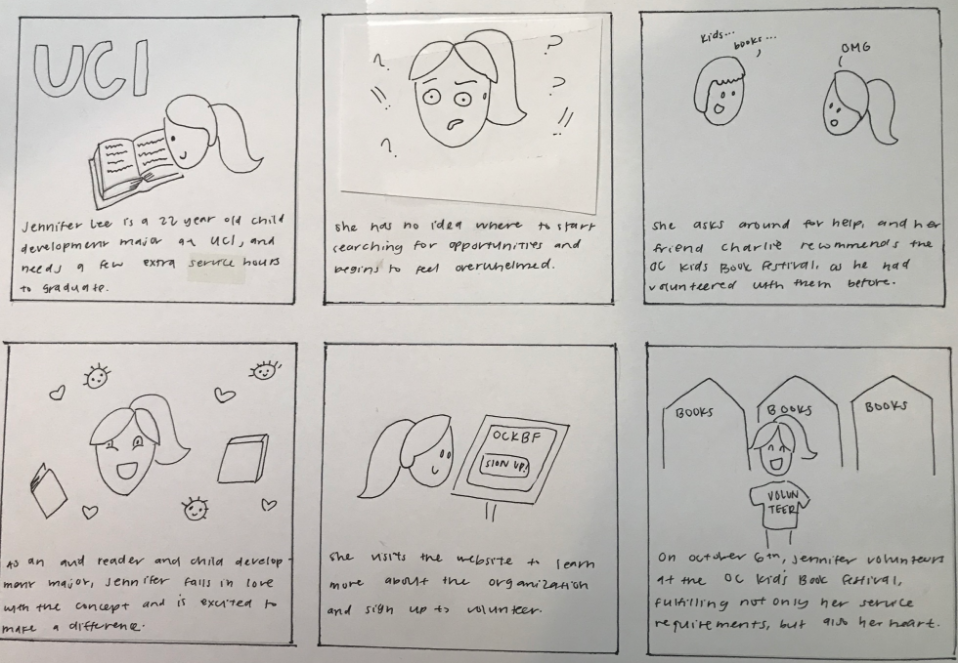 UCI
Jennifer Lee is a 22 year old child
development major at UCI, and
needs a few extra service hours
to graduate.
? ? ? ? !! !!
She has no idea where to start
searching for opportunities and
begins to feel overwhelmed.
kids...
books...
OMG
She asks around for help, and her
friend Charlie recommends the
OC Kids Book Festival, as he had
volunteered with them before.
As an avid reader and child develop-
ment major, Jennifer falls in love
with the concept and is excited to
make a difference.
OCKBF
SIGN UP!
She visits the website to learn
more about the organization
and sign up to volunteer.
BOOKS BOOKS BOOKS
VOLUN
TEER
On October 6th, Jennifer volunteers
at the OC Kids Book Festival,
fulfilling not only her service
requirements, but also her heart.